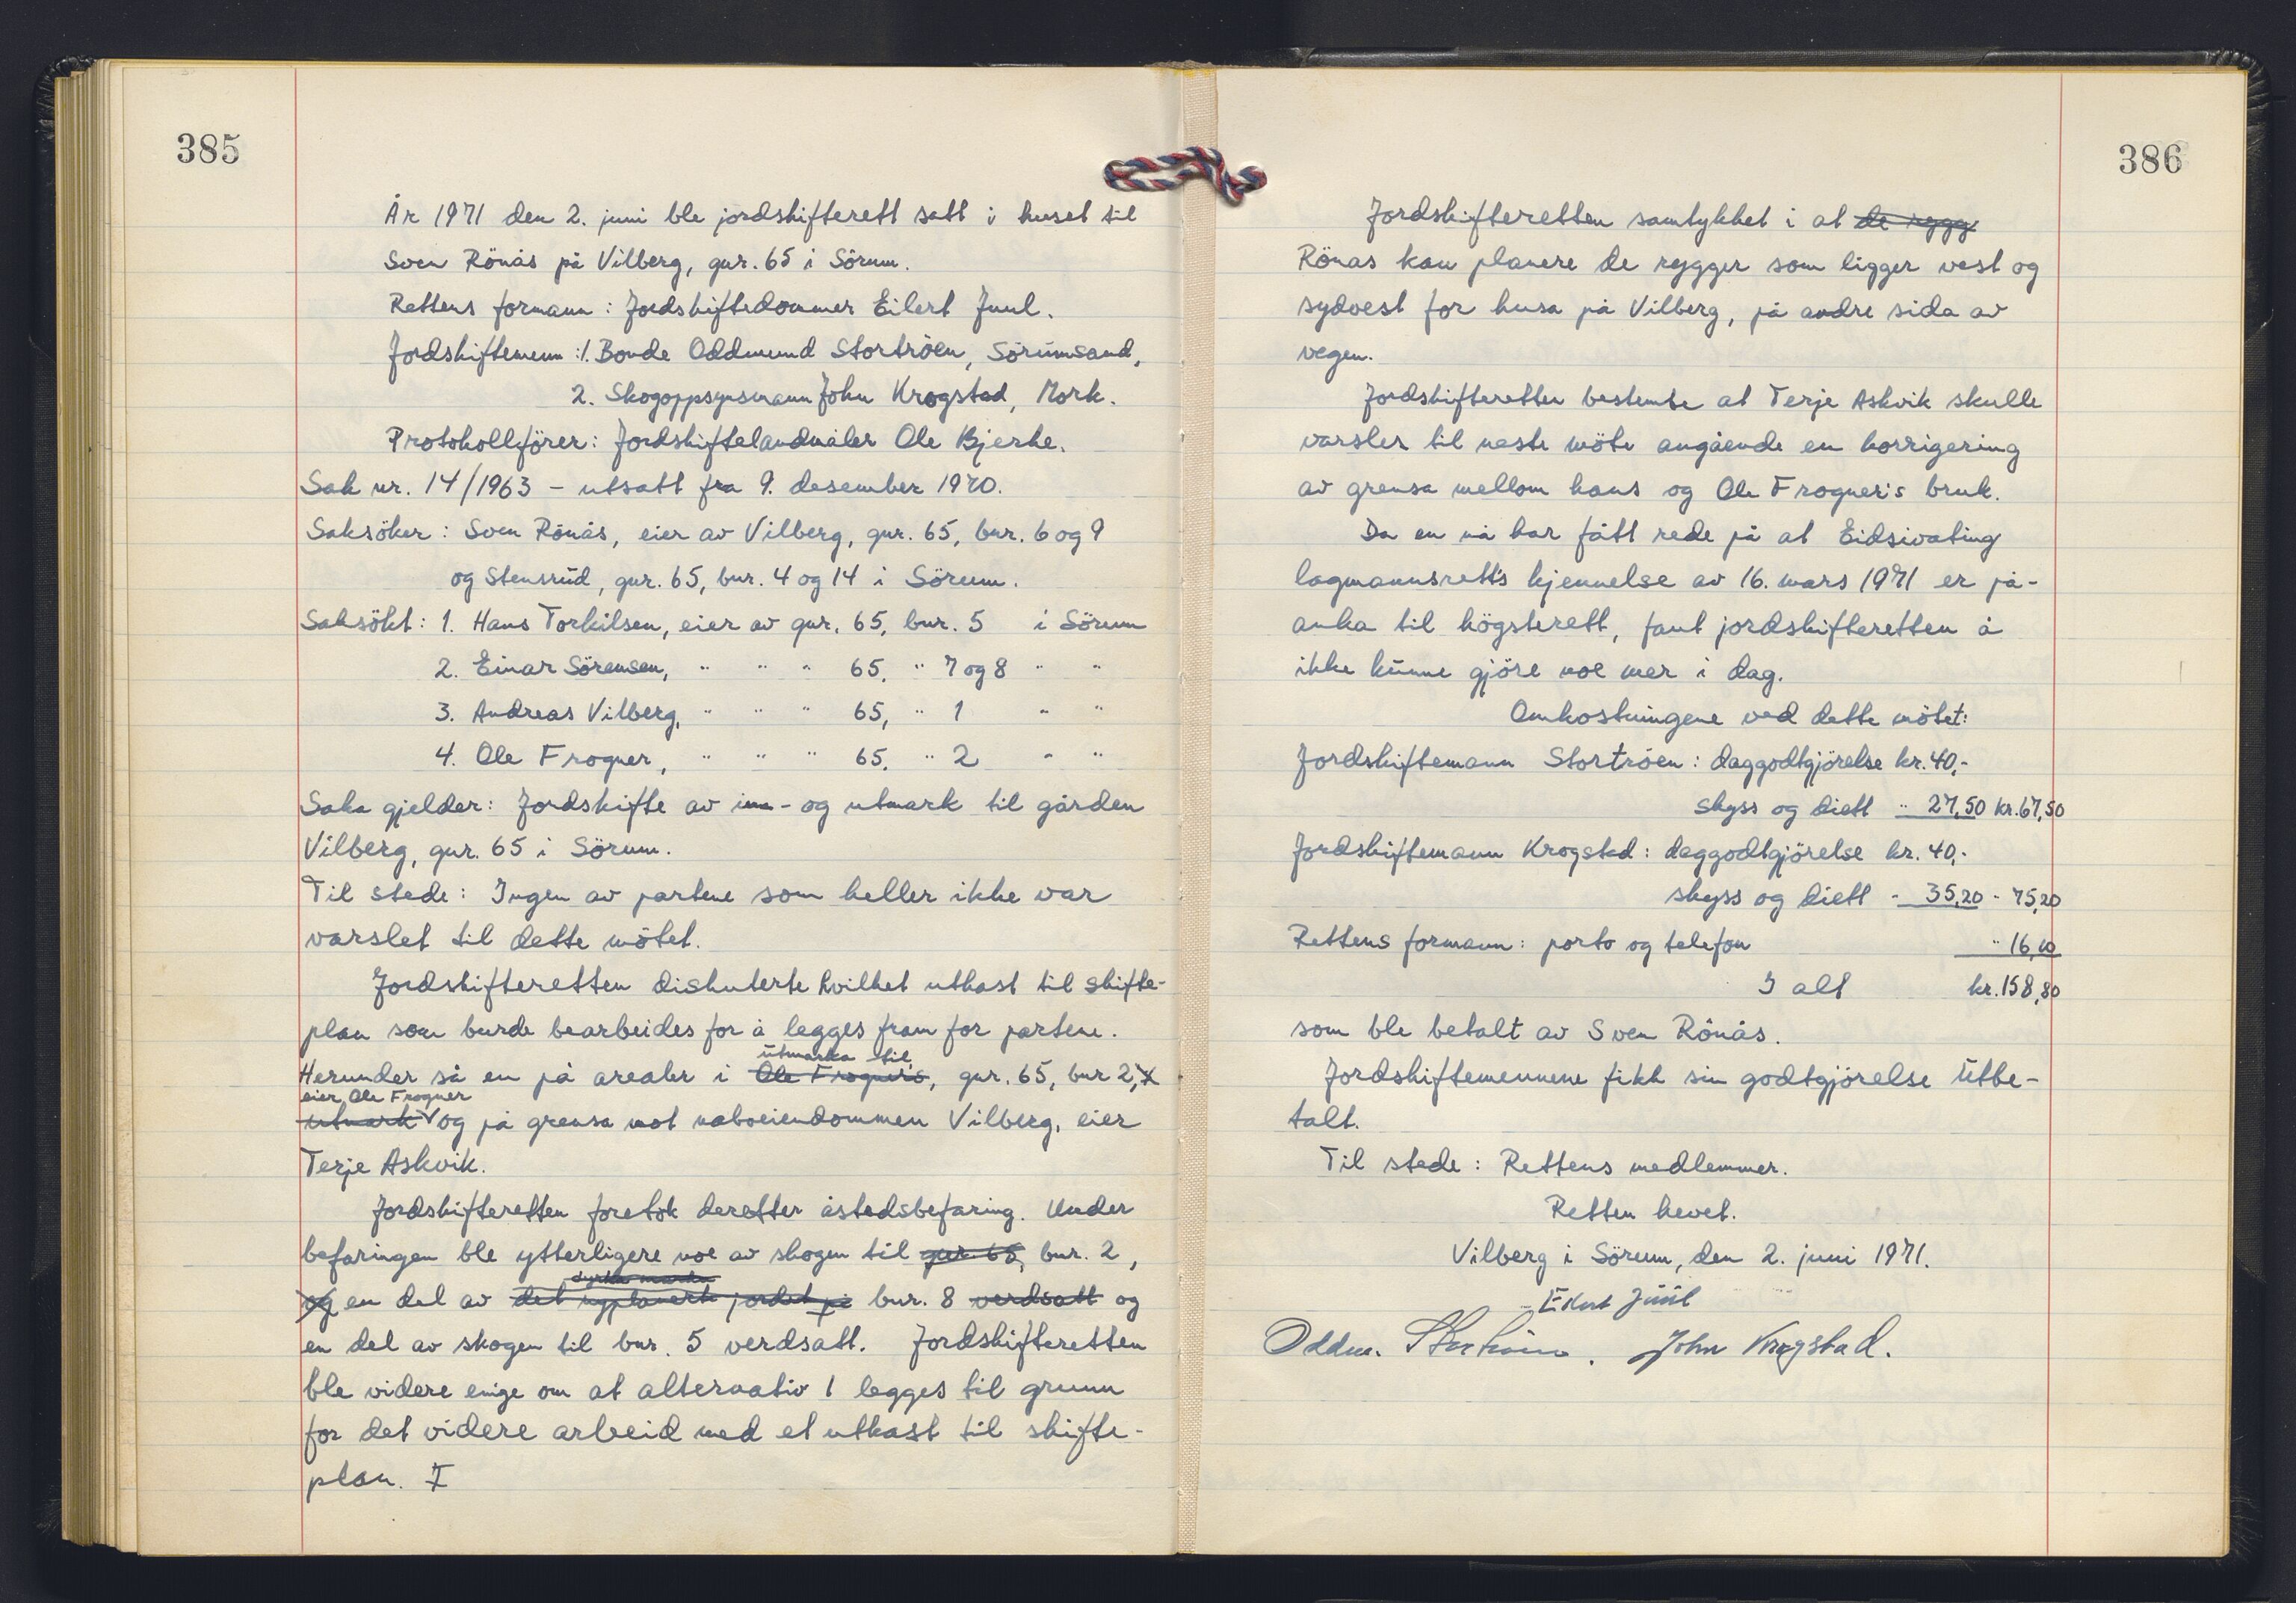 385
År 1971 den 2. juni ble jordskifterett satt i huset til
Sven Rönås på Vilberg, gnr. 65 i Sörum.
Rettens formann: Jordskiftedommer Eilert Juul.
Jordskiftemenn: 1. Bonde Oddmund Stortröen, Sörumsand,
2. Skogoppsynsmann John Krogstad, Mork.
Protokollförer: Jordskiftelandmåler Ole Bjerke.
Sak nr. 14/1963 – utsatt fra 9. desember 1970.
Saksöker: Sven Rönås, eier av Vilberg, gnr. 65, bnr. 6 og 9
og Stensrud, gnr. 65, bnr. 4 og 14 i Sörum.
Saksökt: 1. Hans Torkilsen, eier av gnr. 65, bnr. 5 i Sörum
2. Einar Sörensen, " " " 65, " 7 og 8 " "
3. Andreas Vilberg, " " " 65, " 1 " "
4. Ole Frogner, " " " 65, " 2 " "
Saka gjelder: Jordskifte av inn- og utmark til gården
Vilberg, gnr. 65 i Sörum.
Til stede: Ingen av partene som heller ikke var
varslet til dette mötet.
Jordskifteretten diskuterte hvilket utkast til skifte-
plan som burde bearbeides for å legges fram for partene.
utmarka til
Herunder så en på arealer i Ole Frogners, gnr. 65, bnr 2,
eier Ole Frogner
utmark og på grensa mot naboeiendommen Vilberg, eier
Terje Askvik.
Jordskifteretten foretok deretter åstedsbefaring. Under
befaringen ble ytterligere noe av skogen til gnr. 65, bnr. 2,
dyrka marka
og en del av det nyplanerte jordet på bnr. 8 verdsatt og
en del av skogen til bnr. 5 verdsatt. Jordskifteretten
ble videre enige om at alternativ 1 legges til grunn
for det videre arbeid med et utkast til skifte-
plan. I
386
Jordskifteretten samtykket i at de rygg
Rönas kan planere de rygger som ligger vest og
sydvest for husa på Vilberg, på andre sida av
vegen.
Jordskifteretten bestemte at Terje Askvik skulle
varsles til neste möte angående en korrigering
av grensa mellom hans og Ole Frogner's bruk.
Da en nå har fått rede på at Eidsivating
lagmannsretts kjennelse av 16. mars 1971 er på-
anka til högsterett, fant jordskifteretten å
ikke kunne gjöre noe mer i dag.
Omkostningene ved dette mötet:
Jordskiftemann Stortröen: daggodtgjörelse kr. 40,-
skyss og diett " 27,50 kr. 67,50
Jordskiftemann Krogstad: daggodtgjörelse kr. 40,-
skyss og diett - 35,20 - 75,20
Rettens formann: porto og telefon " 16,10
I alt kr. 158,80
som ble betalt av Sven Rönås.
Jordskiftemennene fikk sin godtgjörelse utbe-
talt.
Til stede: Rettens medlemmer.
Retten hevet.
Vilberg i Sörum, den 2. juni 1971.
Eilert Juul
Oddm. Stortröen. John Krogstad.